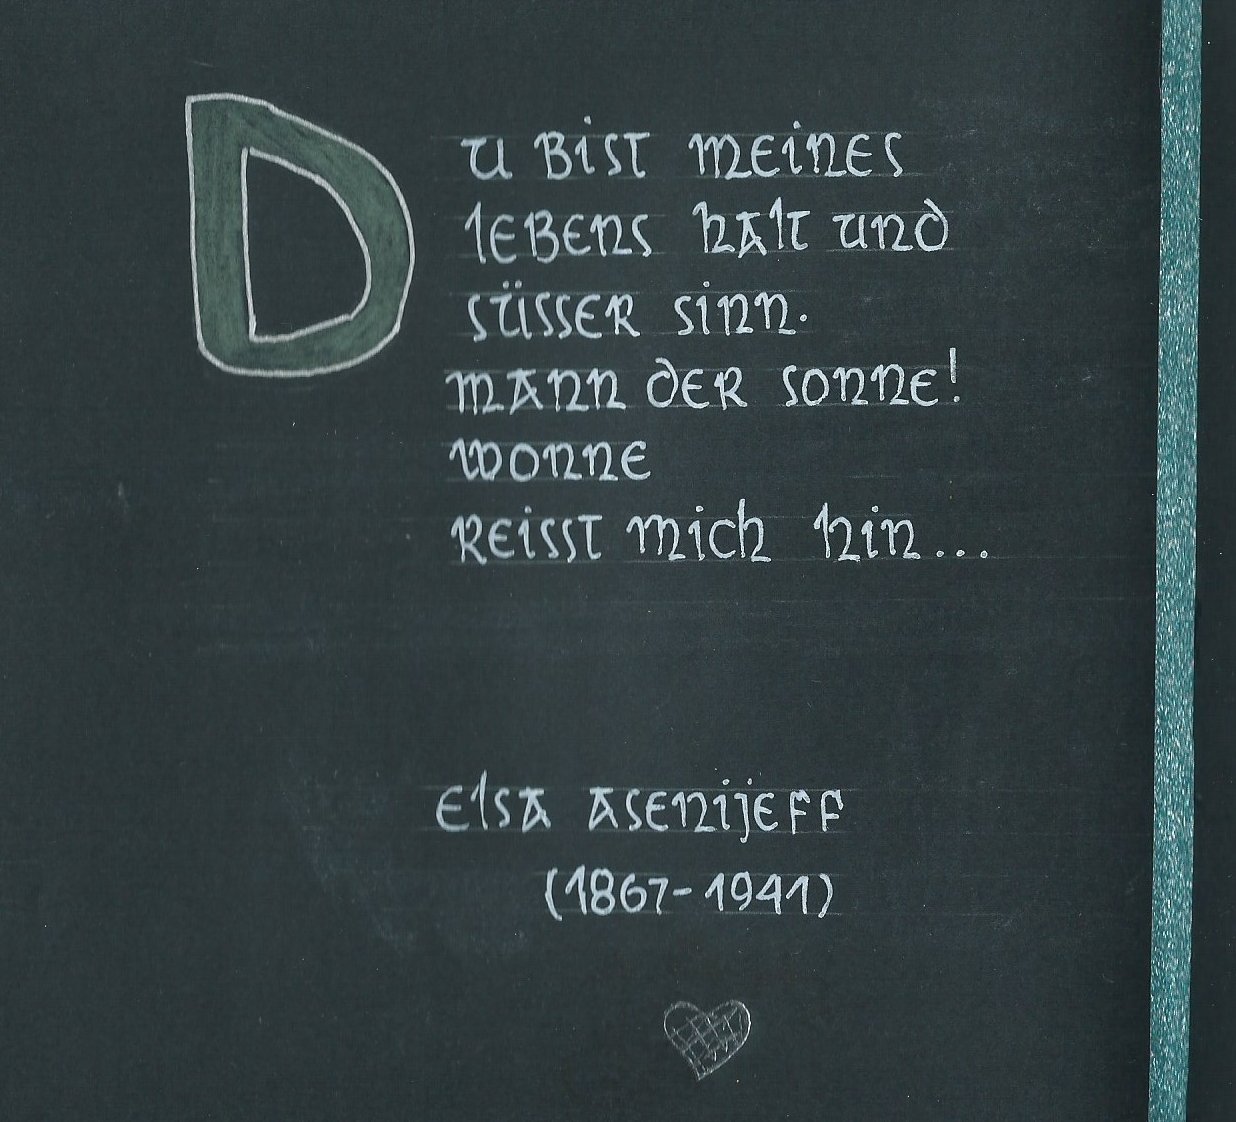 Du bist meines
lebens halt und
süsser sinn.
mann der sonne!
wonne
reisst mich hin...
elsa asenijeff
(1867-1941)